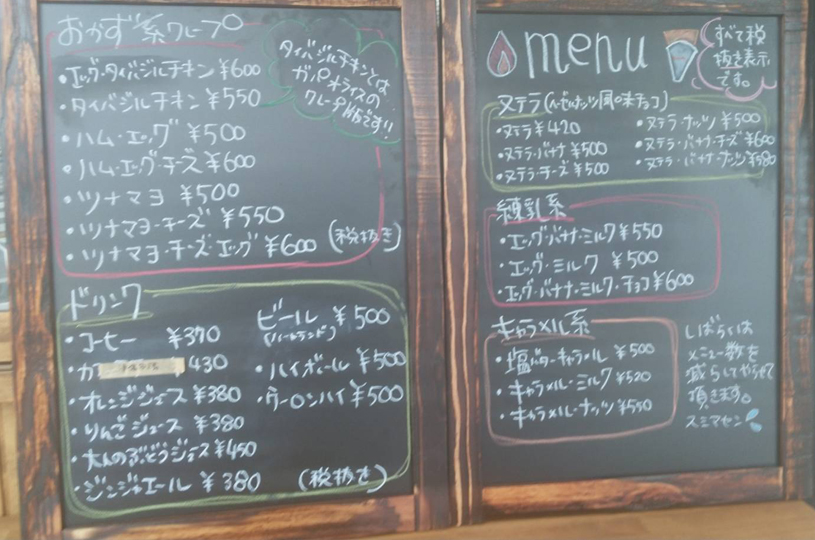 おかず系クレープ
・エッグ・タイバジルチキン ¥600
・タイバジルチキン ¥550
・ハム・エッグ ¥500
・ハム・エッグ・チーズ ¥600
・ツナマヨ ¥500
・ツナマヨ・チーズ ¥550
・ツナマヨ・チーズ・エッグ ¥600 (税抜き)
タイバジルチキンとは
ガパオライスの
クレープ版です!!
ドリンク
・コーヒー ¥370
430
・オレンジジュース ¥380
・りんごジュース ¥380
・大人のぶどうジュース ¥450
・ジンジャエール ¥380
ビール ¥500
(ハートランド)
・ハイボール ¥500
・ウーロンハイ ¥500
(税抜き)
menu
すべて税
抜き表示
です。
ヌテラ(ヘーゼルナッツ風味チョコ)
・ヌテラ ¥420
・ヌテラ・バナナ ¥500
・ヌテラ・チーズ ¥500
・ヌテラ・ナッツ ¥500
・ヌテラ・バナナ・チーズ ¥600
・ヌテラ・バナナ・ナッツ ¥580
練乳系
・エッグ・バナナ・ミルク ¥550
・エッグ・ミルク ¥500
・エッグ・バナナ・ミルク・チョコ ¥600
キャラメル系
・塩バターキャラメル ¥500
・キャラメル・ミルク ¥520
・キャラメル・ナッツ ¥550
しばらくは
メニュー数を
減らしてやらせて
頂きます。
スミマセン